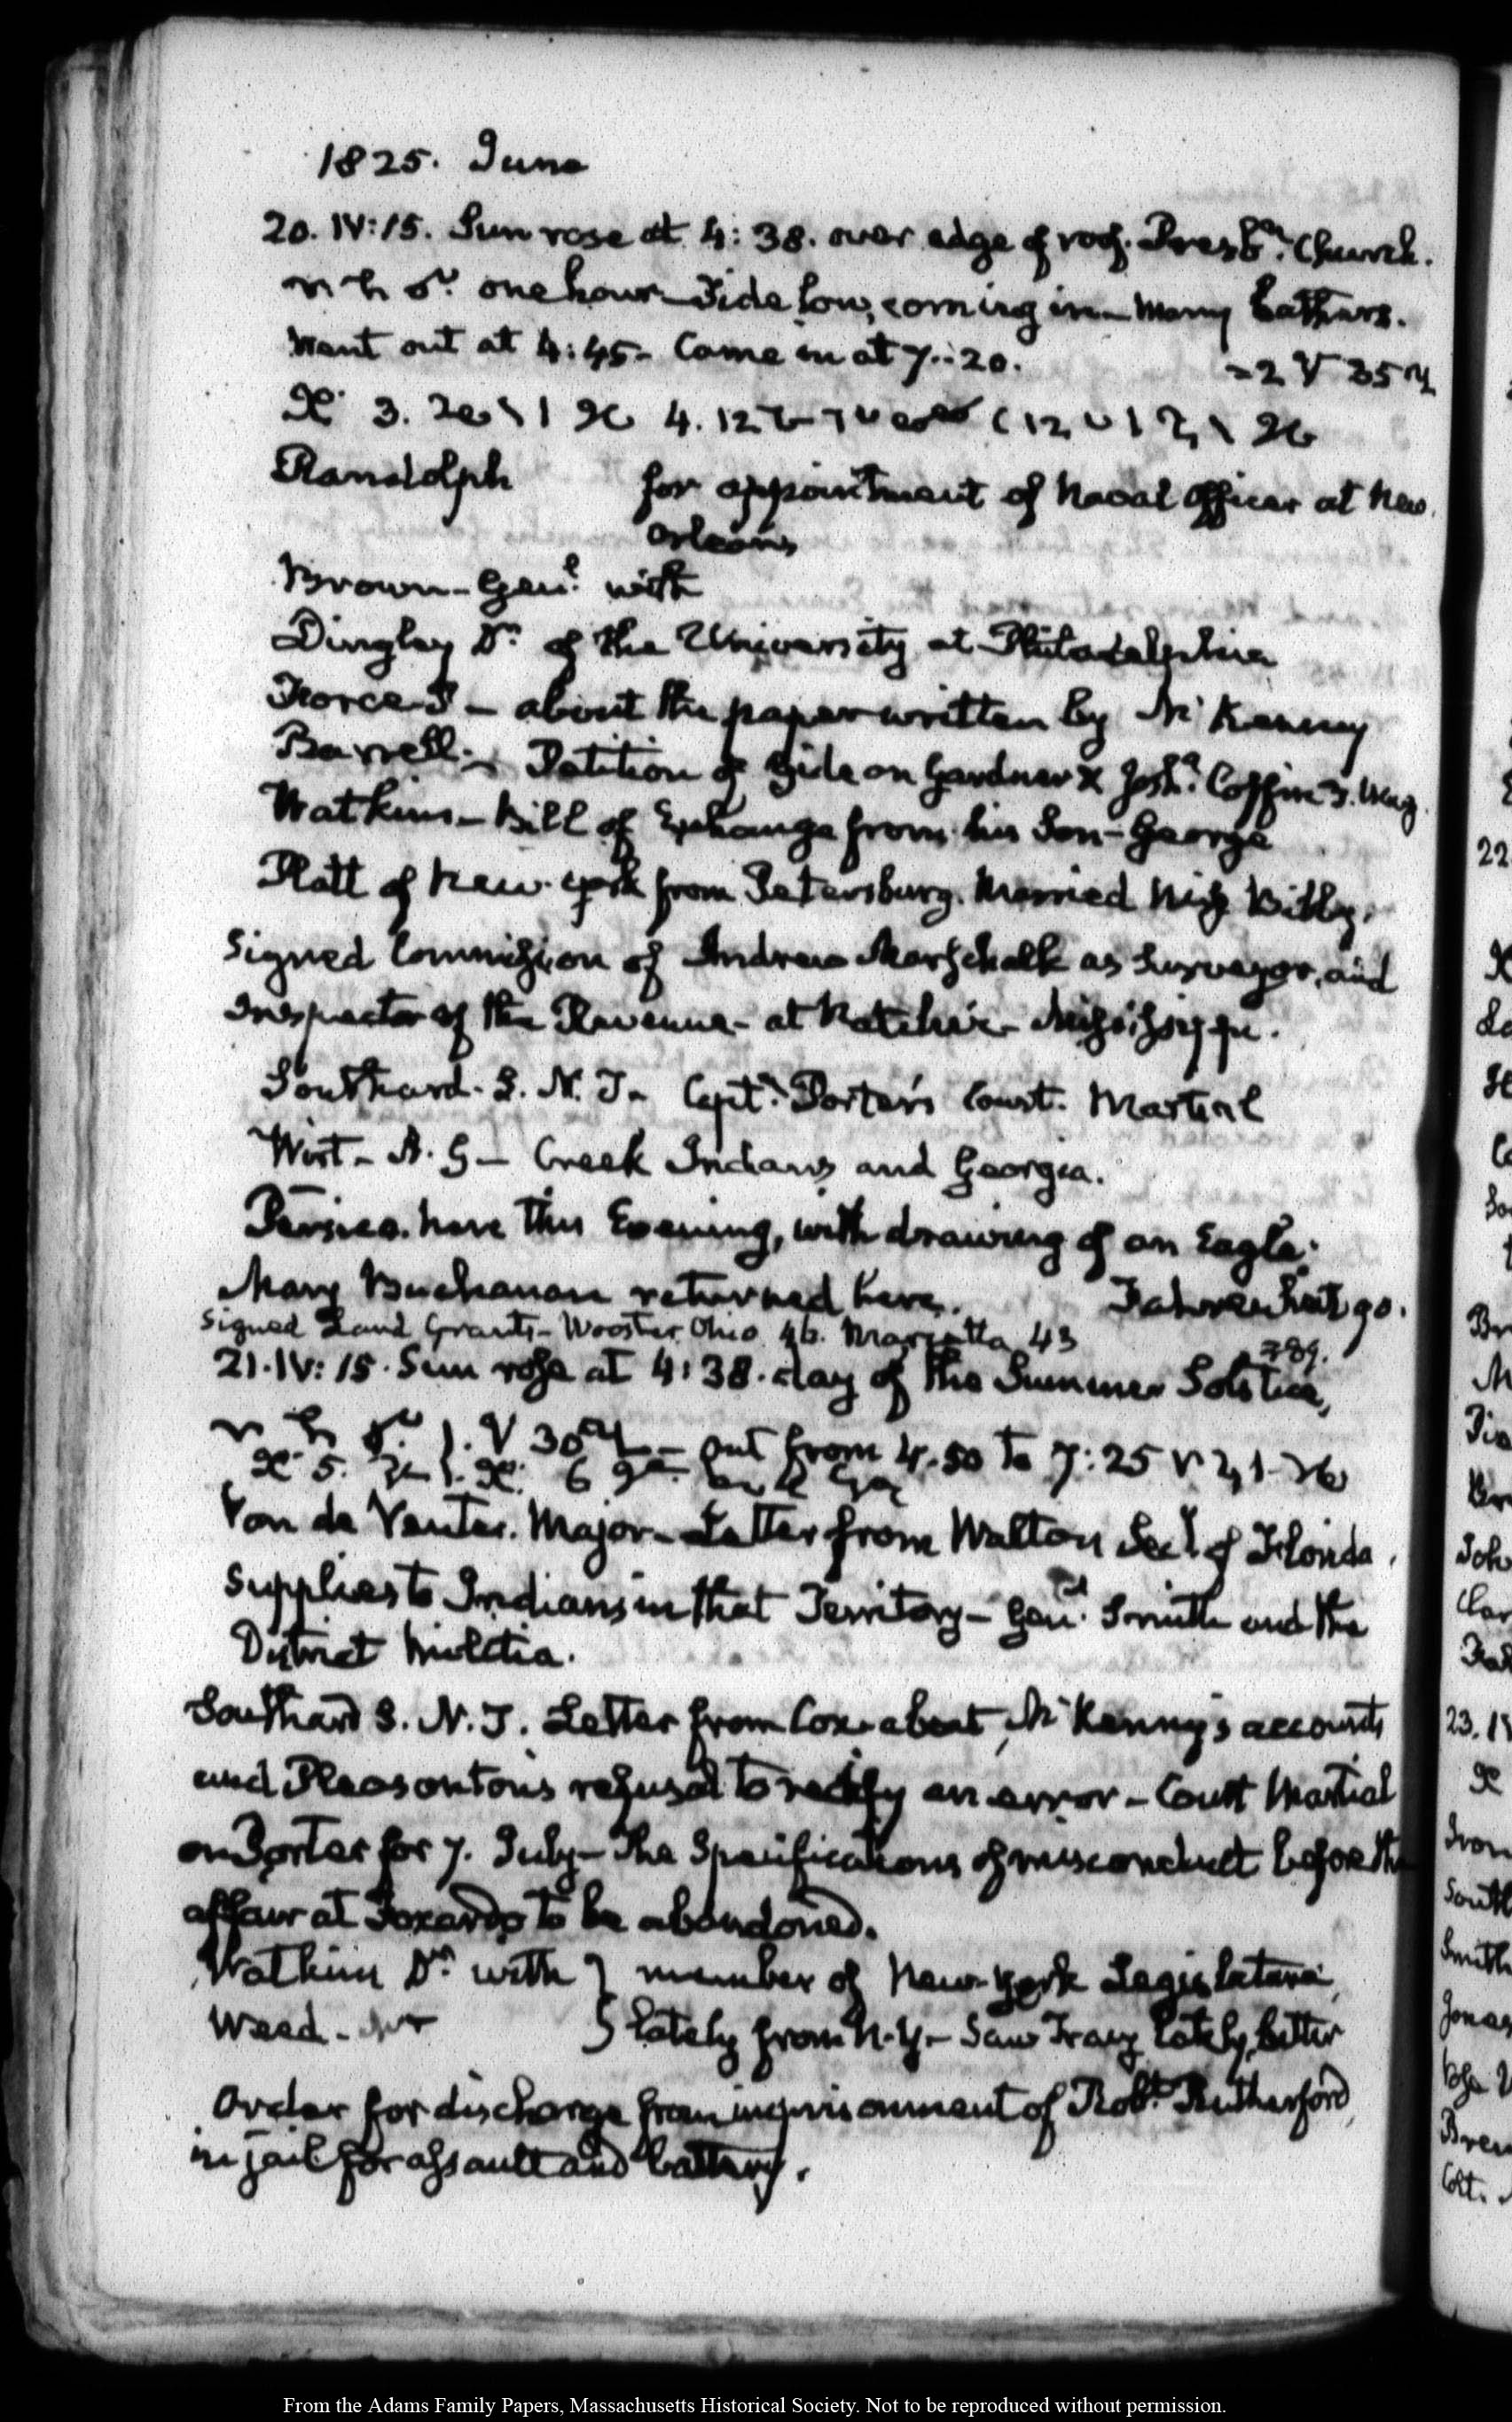 1825. June
20. IV:15. Sun rose at 4:38. over edge of roof. Presbn. Church.
one hour Tide low, coming in — Many bathers.
Went out at 4:45 — Came in at 7:20. = 2 35
3. 4. 12
Randolph for appointment of Naval Officer at New
Orleans
Brown — Genl. with
Dingley Dr. of the University at Philadelphia
Force P — about the paper written by McKenney
Barrell — Petition of Gideon Gardner & Josha. Coffin
Watkins — Bill of Exchange from his Son — George
Platt of New York from Petersburg. Married Miss Bibby.
Signed Commission of Andrew Marschalk as Surveyor, and
Inspector of the Revenue — at Natchez — Mississippi.
Southard. S. N. D. Capt. Porter's Court. Martial
Wirt — A. G — Creek Indians and Georgia.
Persico. here this Evening, with drawing of an Eagle.
Mary Buchanan returned here. Fahrenheit 90.
Signed Land Grants — Wooster, Ohio 46. Marietta 43
89.
21. IV:15. Sun rose at 4:38. day of the Summer Solstice,
1. 30 — out from 4.50 to 7:25
5. 6
Van de Venter. Major — Letter from Walton Secy. of Florida.
Supplies to Indians in that Territory — Genl. Smith and the
District Militia.
Southard S. N. D. Letter from Cox about McKenny's accounts
and Pleasonton's refusal to rectify an error — Court Martial
on Porter for 7. July — The Specifications of misconduct before the
affair at Foxardo to be abandoned.
Watkins Dr. with } member of New-York Legislature
Weed — Mr } lately from N.Y — Saw Tracy lately, better
Order for discharge from imprisonment of Robt. Rutherford,
in jail for assault and battery.
From the Adams Family Papers, Massachusetts Historical Society. Not to be reproduced without permission.